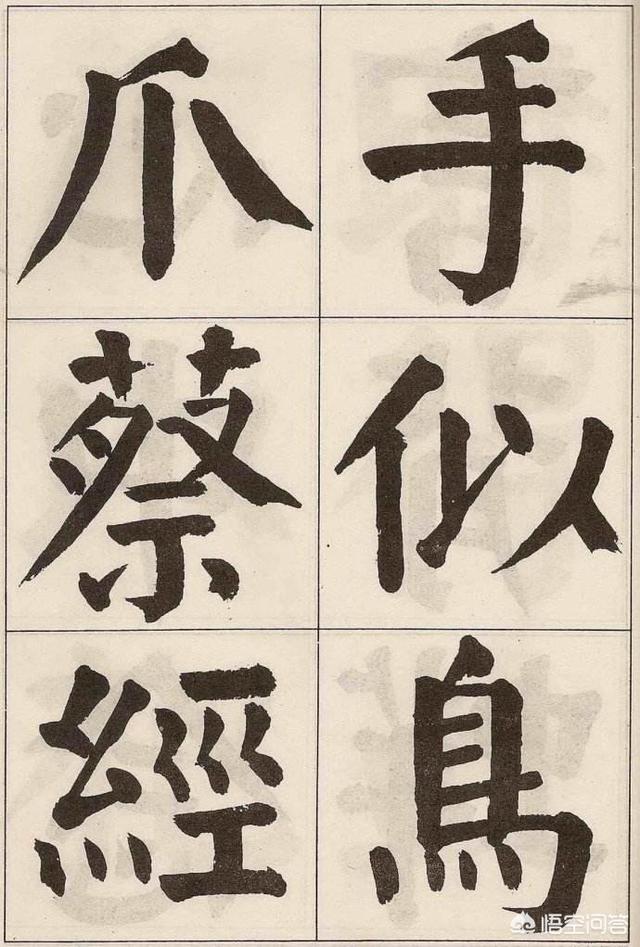 手似鳥
爪蔡經
悟空问答